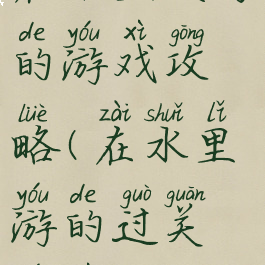 de yóu xì gōng
的游戏攻
lüè zài shuǐ lǐ
略(在水里
yóu de guò guān
游的过关